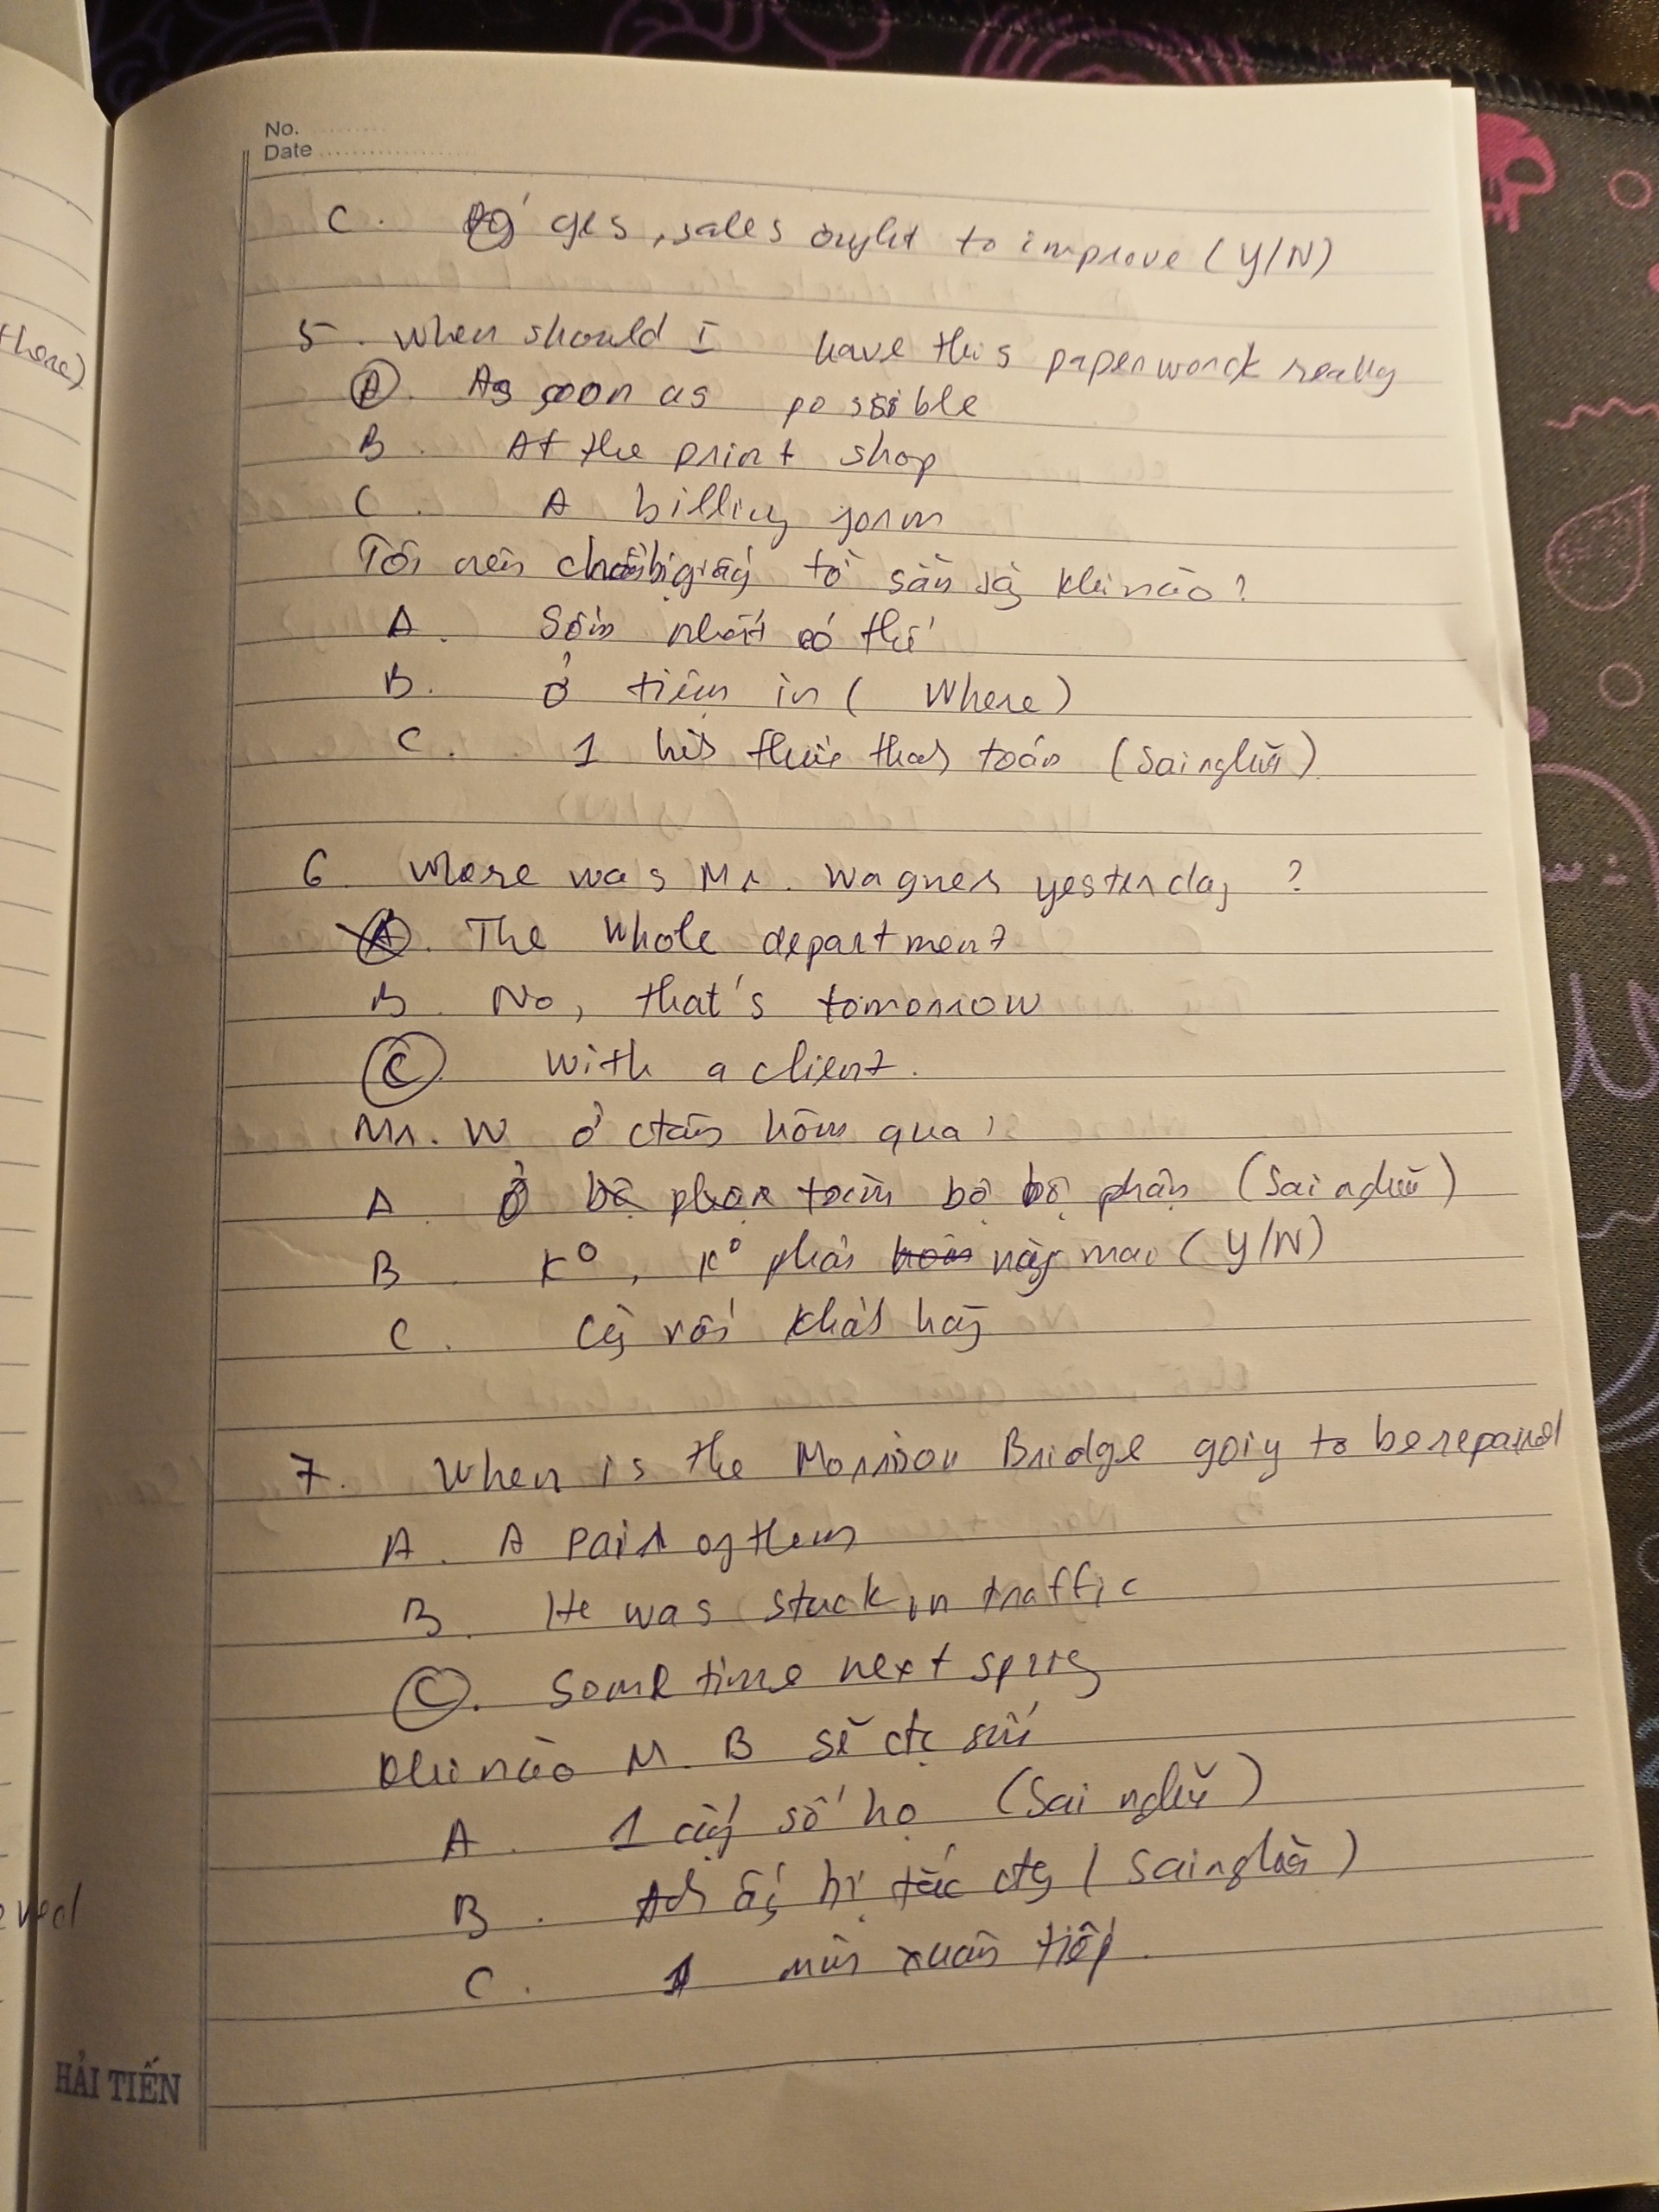 there)
ved
No.
Date
C. yes, sales ought to improve (Y/N)
5. When should I have this paperwork ready
A. As soon as possible
B. At the print shop
C. A billing form
Tôi nên chuẩn bị giấy tờ sẵn sàg khi nào?
A. Sớm nhất có thể
B. Ở tiệm in (Where)
C. 1 hìh thức thah toán (Sai nghĩa)
6. Where was Mr. Wagner yesterday?
A. The whole department
B. No, that's tomorrow
C. With a client.
Mr. W ở đâu hôm qua
A. Ở toàn bộ bộ phận (Sai nghĩa)
B. K⁰, k⁰ phải ngày mai (Y/N)
C. Cùg với kháh hàg
7. When is the Morrison Bridge going to be repaired
A. A pair of them
B. He was stuck in traffic
C. Some time next spring
Khi nào M. B sẽ đc sửa
A. 1 cặp số họ (Sai nghĩa)
B. Ah ấy bị tắc đg (Sai nghĩa)
C. mùa xuân tiếp.
HẢI TIẾN